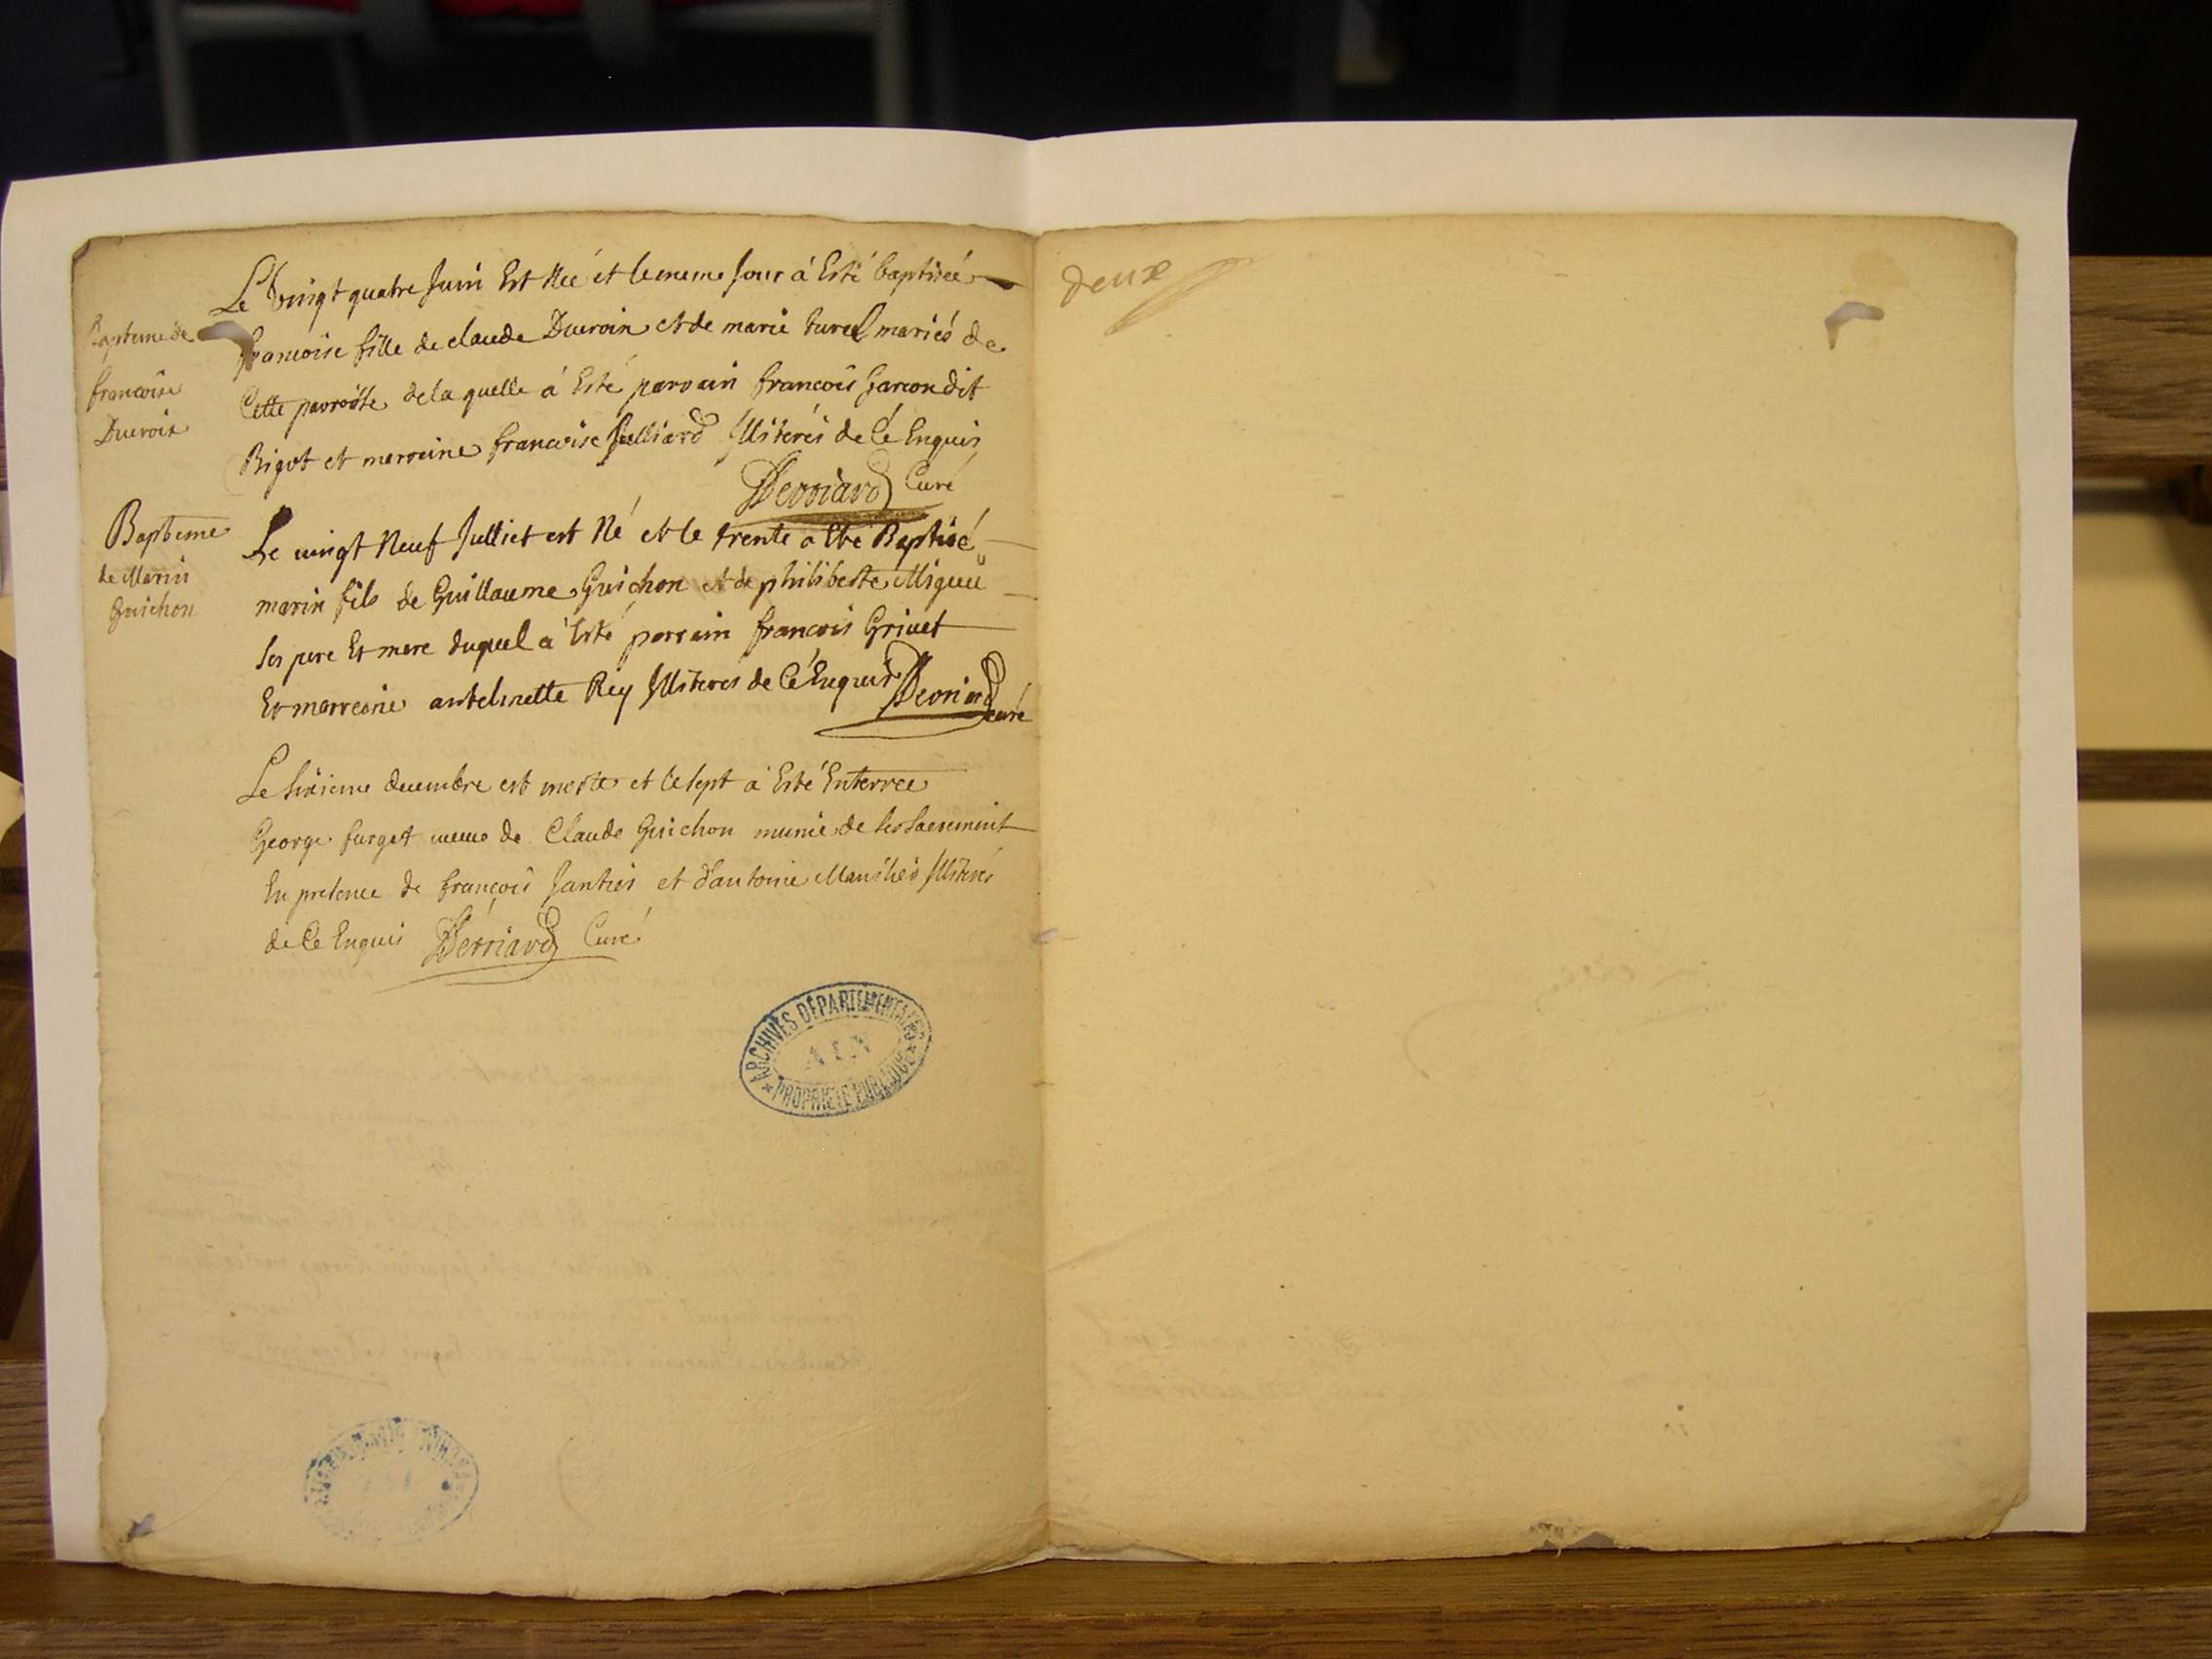 Le vingt quatre Juin Est Née et le meme Jour à Esté baptiseé
Bapteme de
francoise
Ducroix
francoise fille de claude Ducroix et de marie turel mariés de
Cette parroisse de la quelle à Esté parrain francois Garcon dit
Bigot et marreine francoise Julliard Illiterés de Cé Enquis
Derriard Curé
Bapteme
de Marin
Guichon
Le vingt Neuf Julliet est Né et le trente à Eté Baptisé
marin fils de Guillaume Guichon et de philiberte
ses pere Et mere duquel à Esté parrain francois Grivet
Et marreine antelmette Rey Illiterés de Cé Enquis Derriard
curé
Le sixieme decembre est morte et le sept à Esté Enterree
George furget veuve de Claude Guichon munie de ses sacrement
En presence de françois Jantier et d'antoine Illiterés
de Ce Enquis Derriard Curé
ARCHIVES DÉPARTEMENTALES
AIN
PROPRIÉTÉ PUBLIQUE
deux